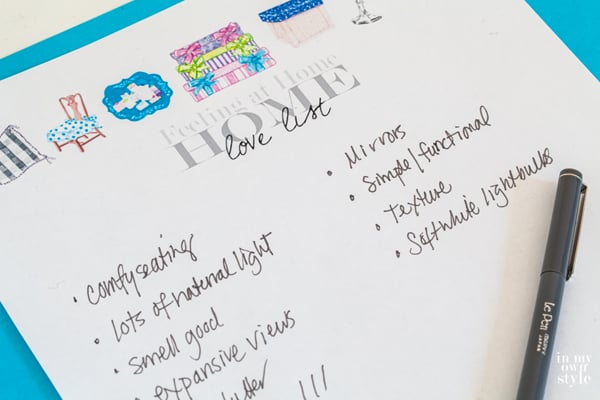 Feeling at Home
HOME
love list
• comfy seating
• lots of natural light
• smell good
• expansive views
• Mirrors
• Simple/functional
• Texture
• Soft white lightbulbs
Le Pen
JAPAN
in my
own
style